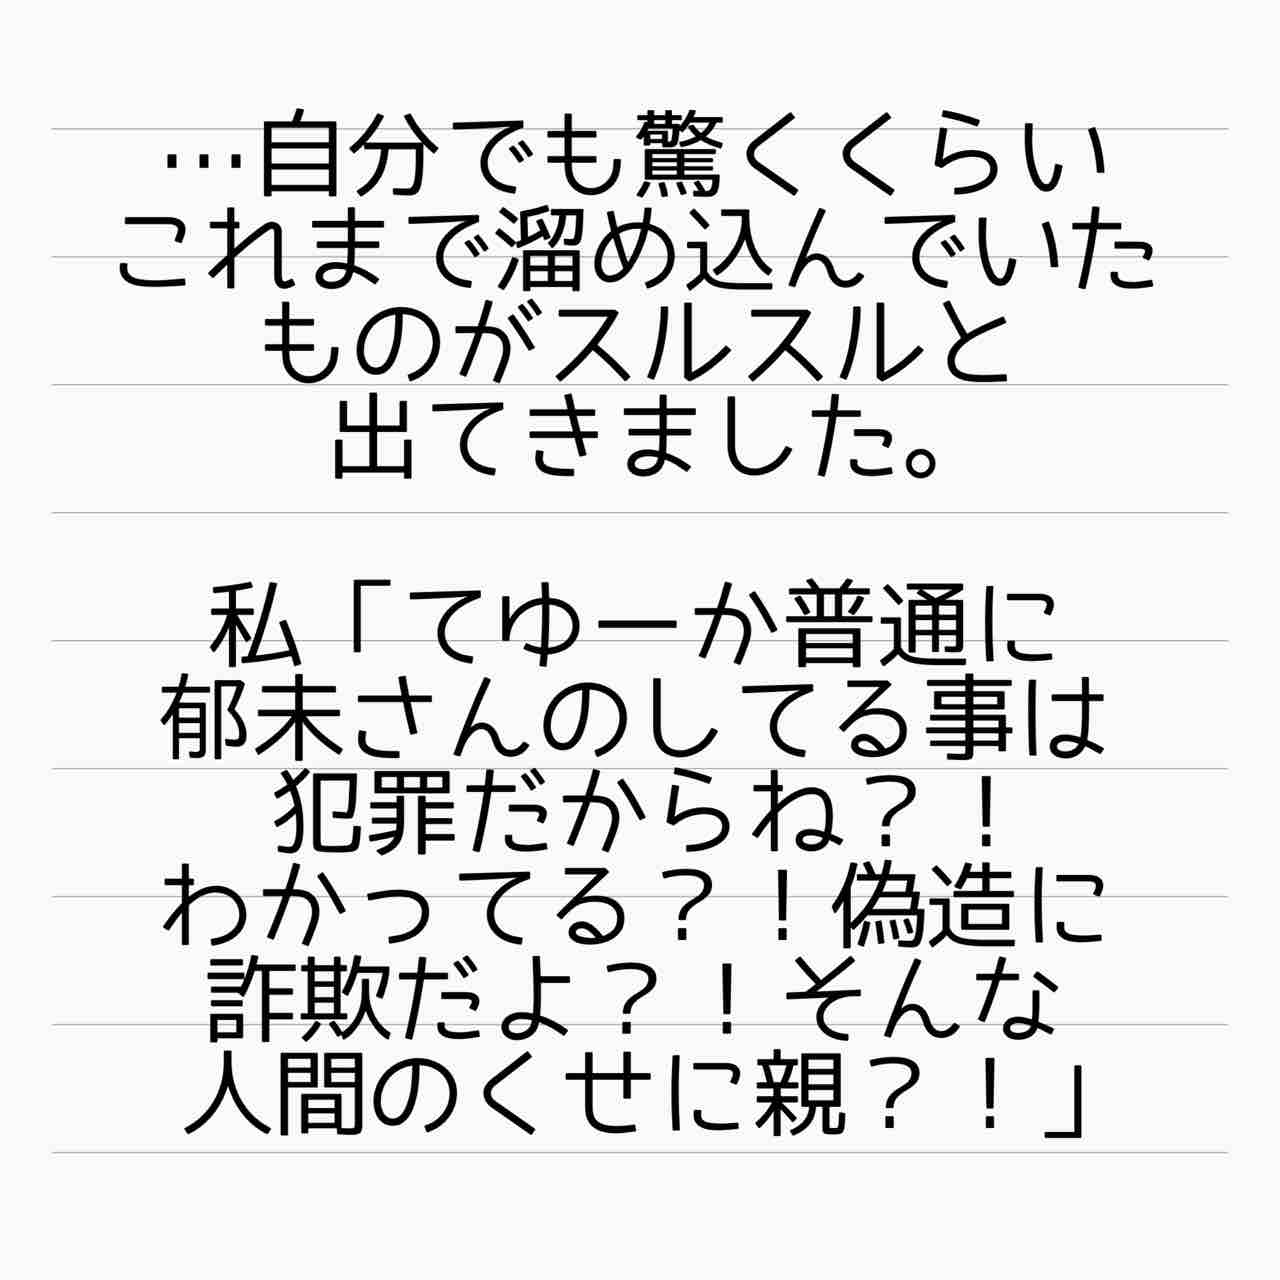 …自分でも驚くくらい
これまで溜め込んでいた
ものがスルスルと
出てきました。
私「てゆーか普通に
郁未さんのしてる事は
犯罪だからね？！
わかってる？！偽造に
詐欺だよ？！そんな
人間のくせに親？！」